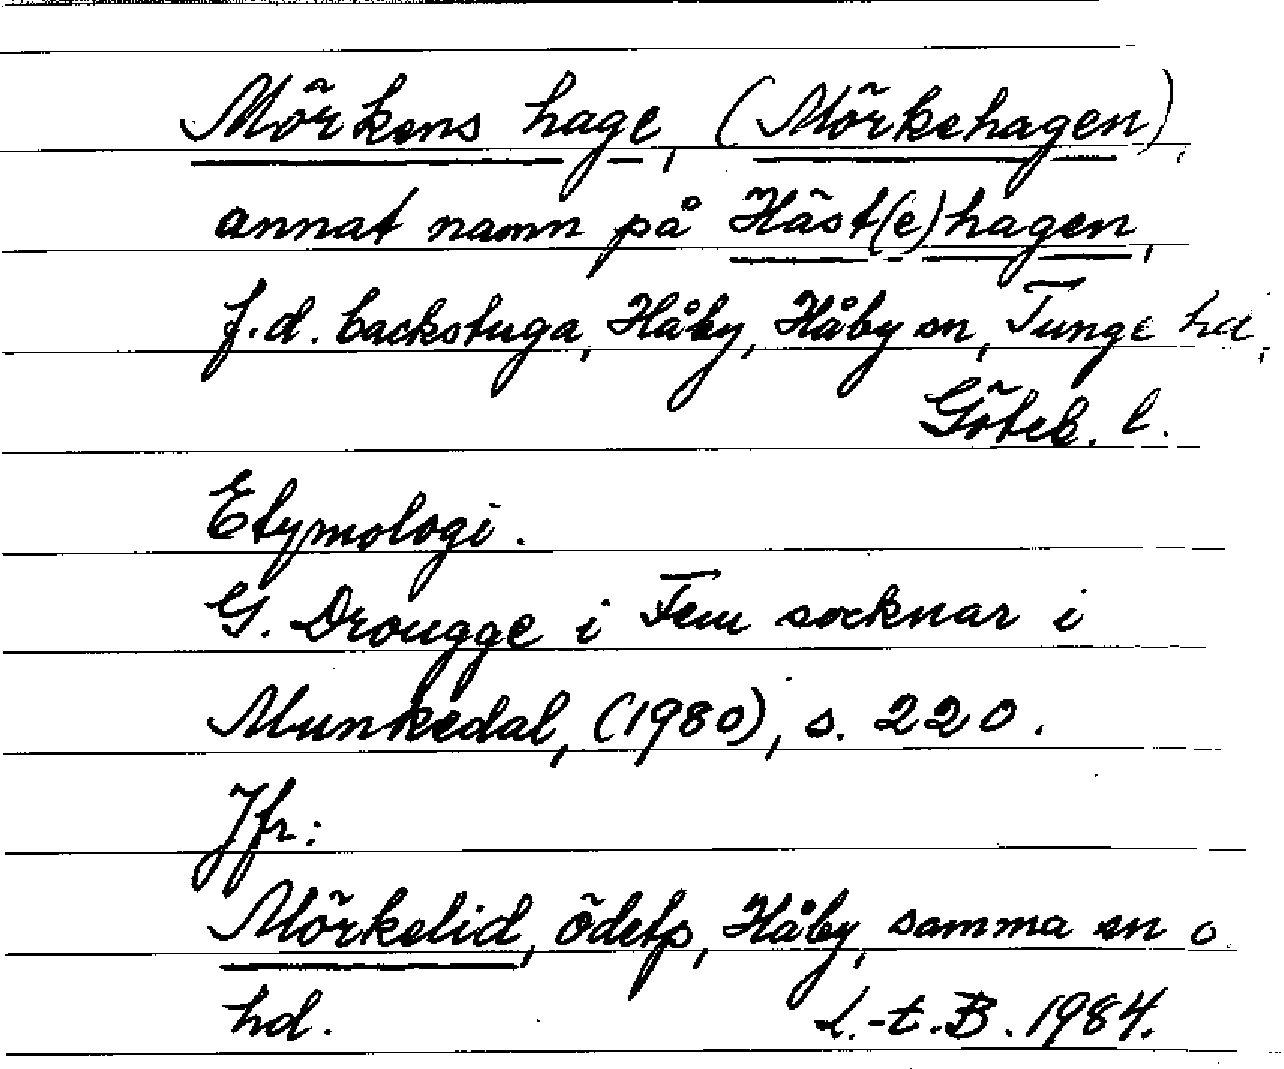 Mörkens hage, (Mörkehagen),
annat namn på Häst(e)hagen,
f.d. backstuga, Håby, Håby sn, Tunge hd,
Göteb. l.
Etymologi.
G. Drougge i Fem socknar i
Munkedal, (1980), s. 220.
Jfr:
Mörkelid, ödetp, Håby, samma sn o.
hd. L.-t. B. 1984.